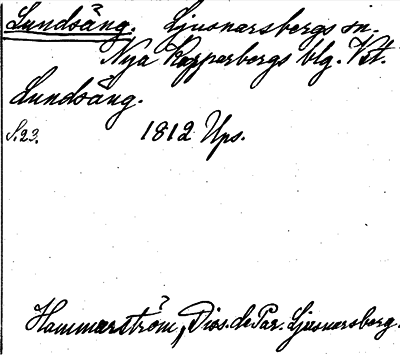 Lundsäng. Ljusnarsbergs sn.
Nya Kopparbergs blg. Vst.
Lundsäng.
S. 23. 1812 Ups.
Hammarström, Diss. de Par. Ljusnarsberg.